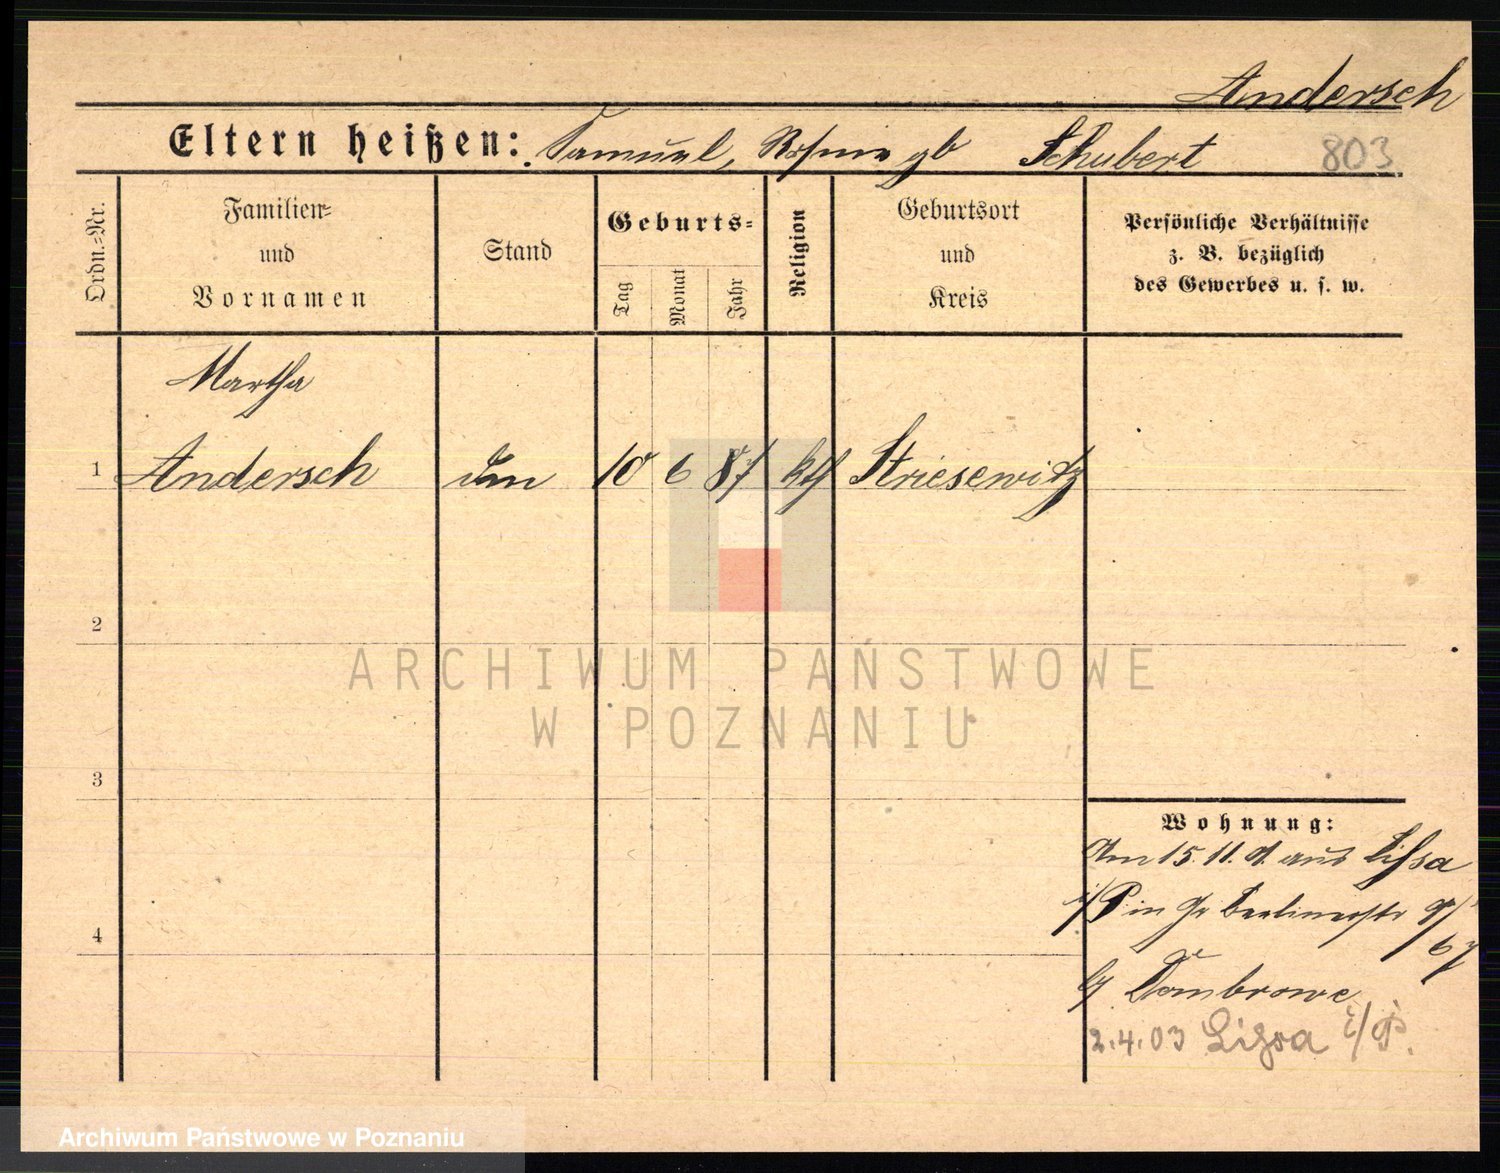 Andersch
Eltern heißen: Samuel, Rosina gb Schubert
803
Ordn.-Nr.
Familien-
und
Vornamen
Stand
Geburts-
Tag
Monat
Jahr
Religion
Geburtsort
und
Kreis
Persönliche Verhältnisse
z. B. bezüglich
des Gewerbes u. s. w.
Martha
1 Andersch 10 6 87 kth Striesewitz
2
3
4
ARCHIWUM PAŃSTWOWE
W POZNANIU
Wohnung:
Am 15. 11. aus Lissa
i/P in Gr Berlinerstr
67
b/ Dombrowe
2.4.03 Lissa i/P.
Archiwum Państwowe w Poznaniu